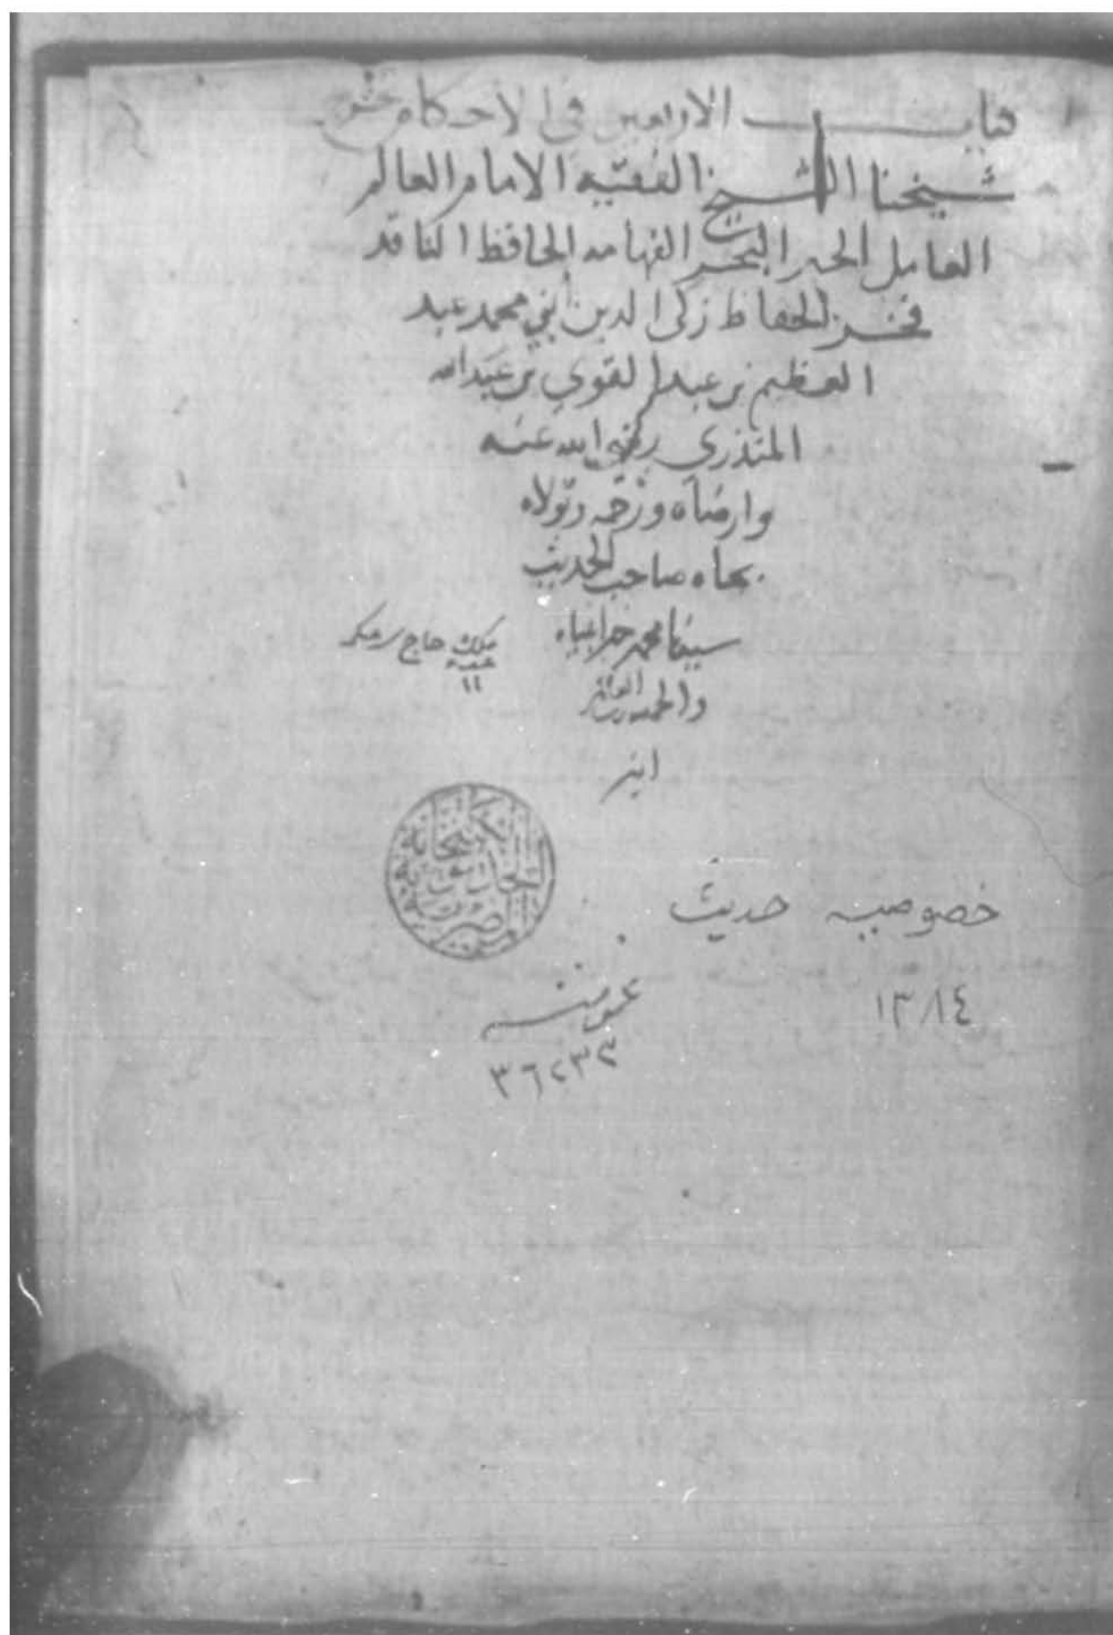 كتاب الاربعين في الاحكام تخريج
شيخنا الشيخ الفقيه الامام العالم
العامل الحبر البحر الفهامه الحافظ الناقد
فخر الحفاظ زكى الدين ابي محمد عبد
العظيم بن عبد القوي بن عبد الله
المنذري رضي الله عنه
وارضاه ورحمه وتولاه
بجاه صاحب الحديث
سيدنا محمد خير انبياه
والحمد لله رب العالمين
امين
ملك حاج
الكتبخانة الخديوية المصرية
خصوصيه حديث
١٣٨٤
عموميه
٣٦٢٣٢